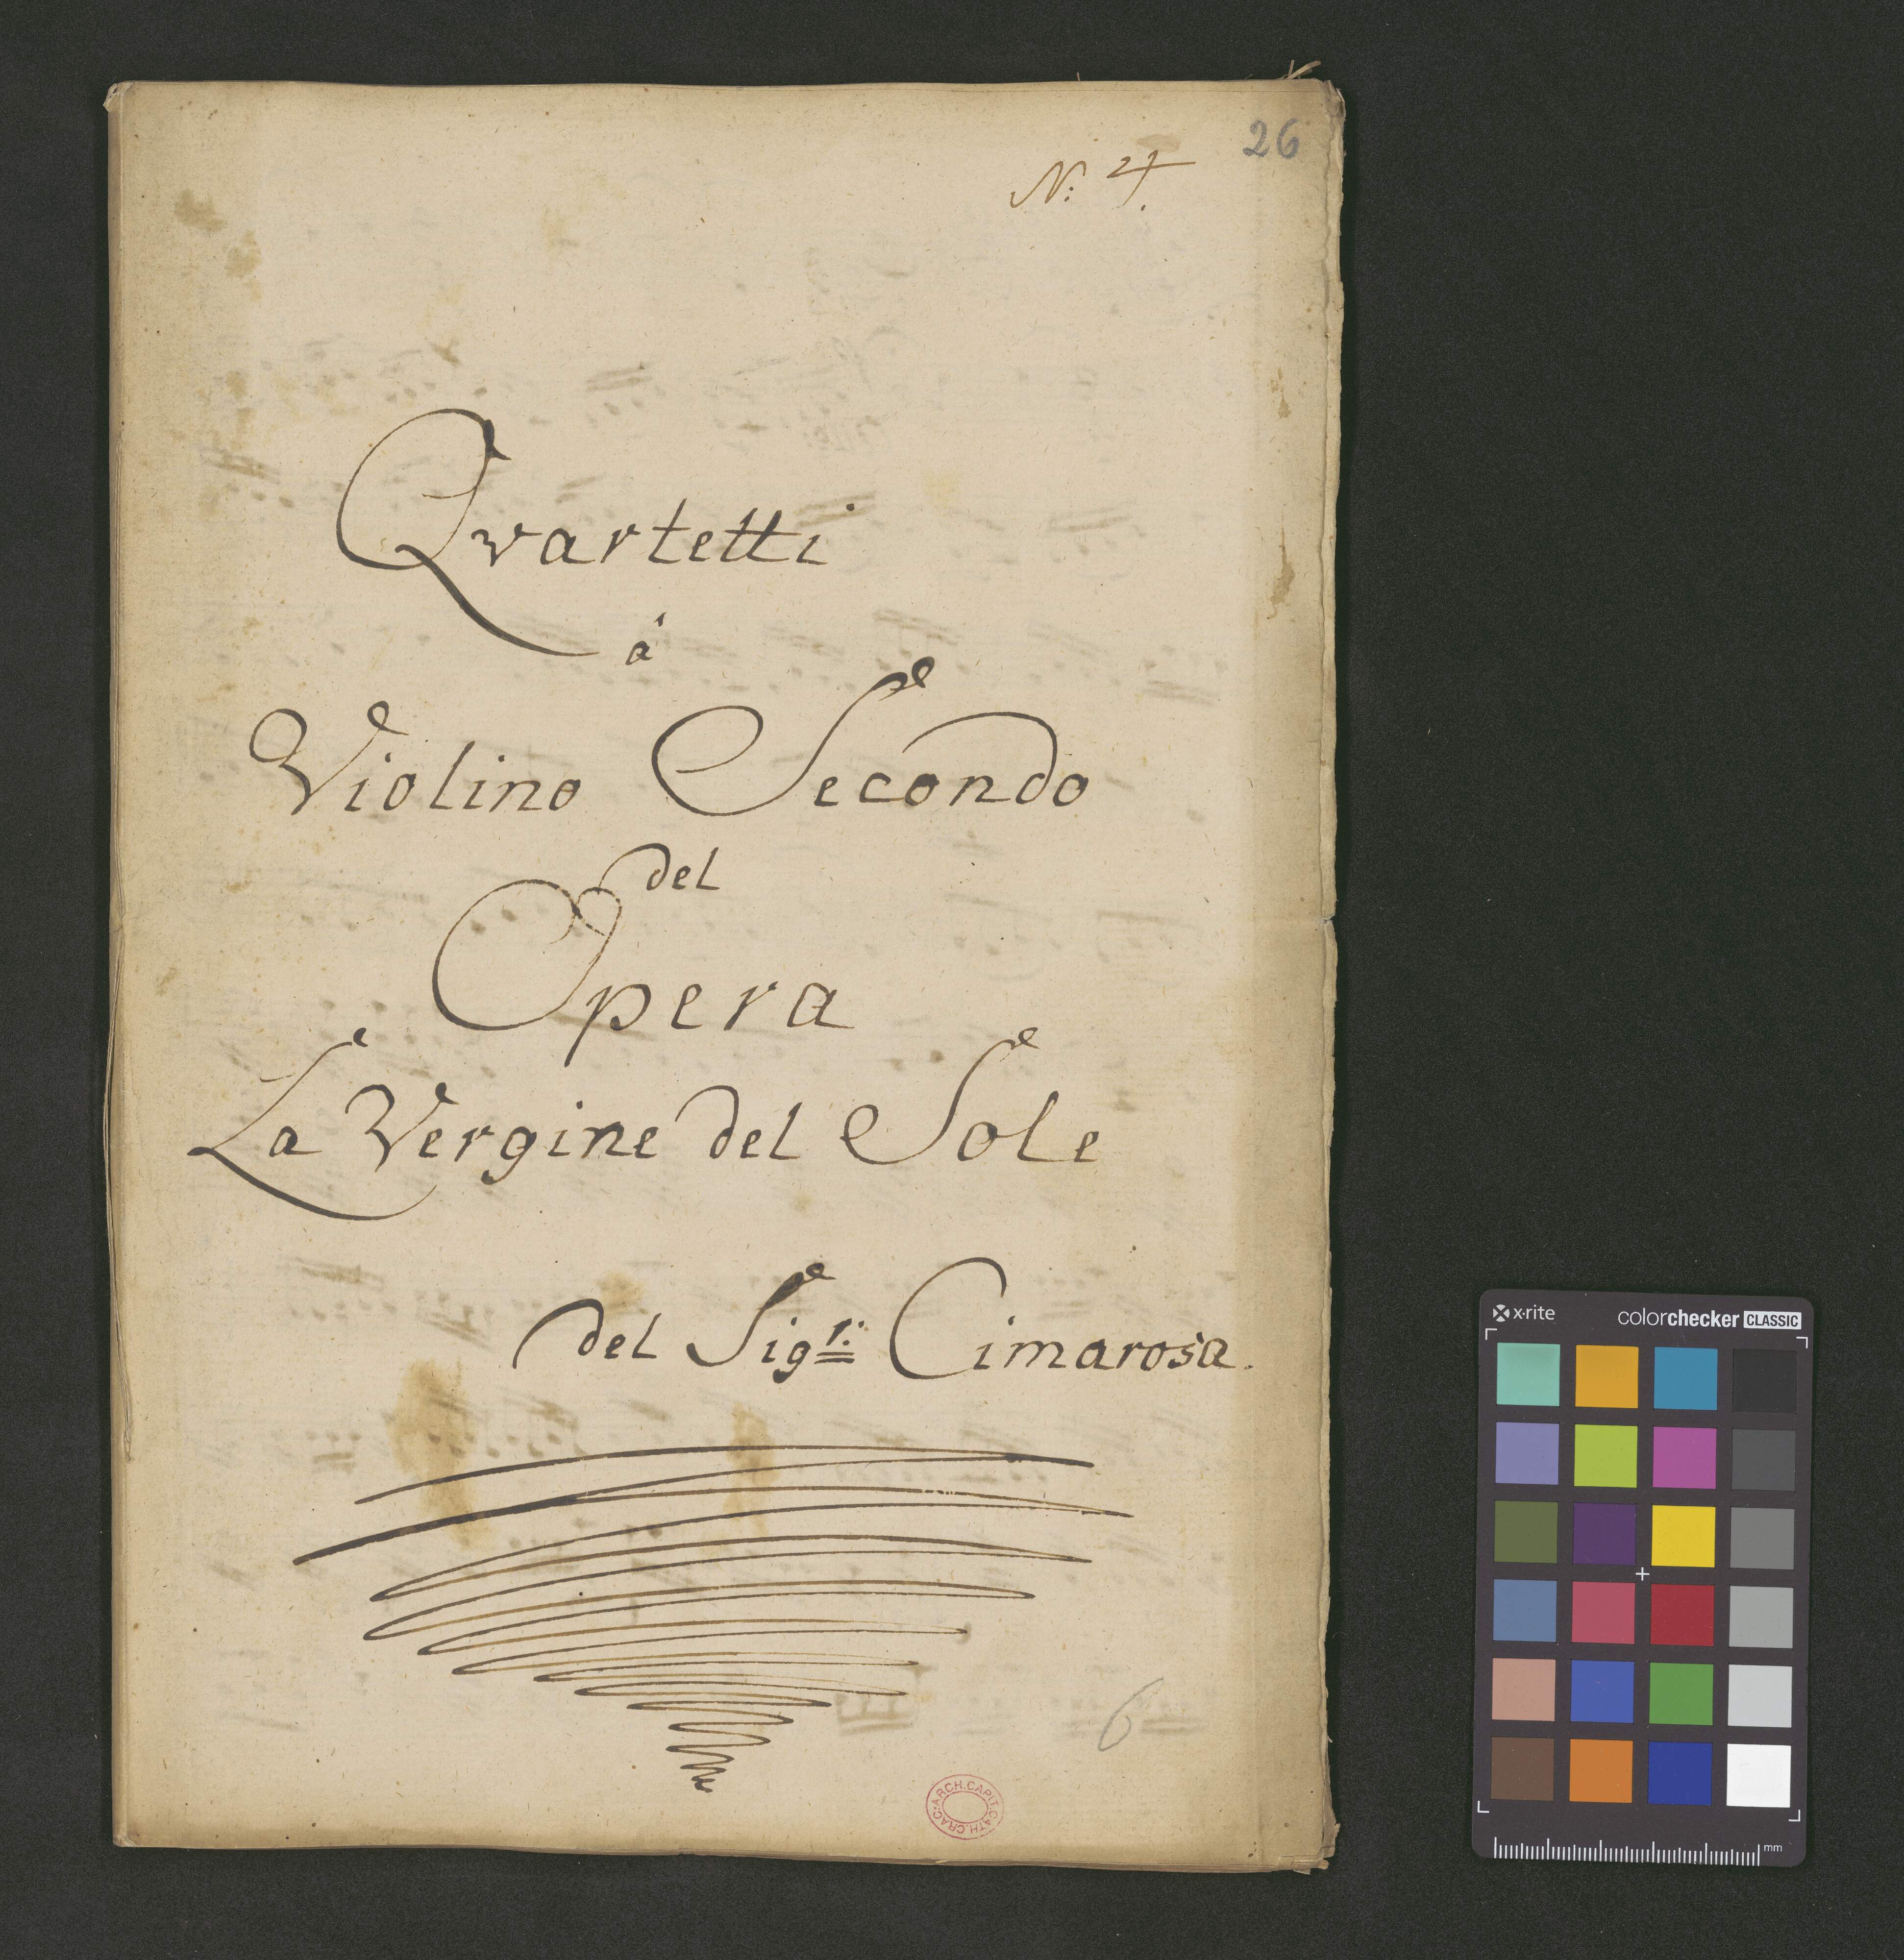 26
N: 4.
Qvartetti
à
Violino Secondo
del
Opera
La Vergine del Sole
del Sigr: Cimarosa.
6
ARCH.CAPIT.CATH.CRAC.
x-rite
colorchecker CLASSIC
mm